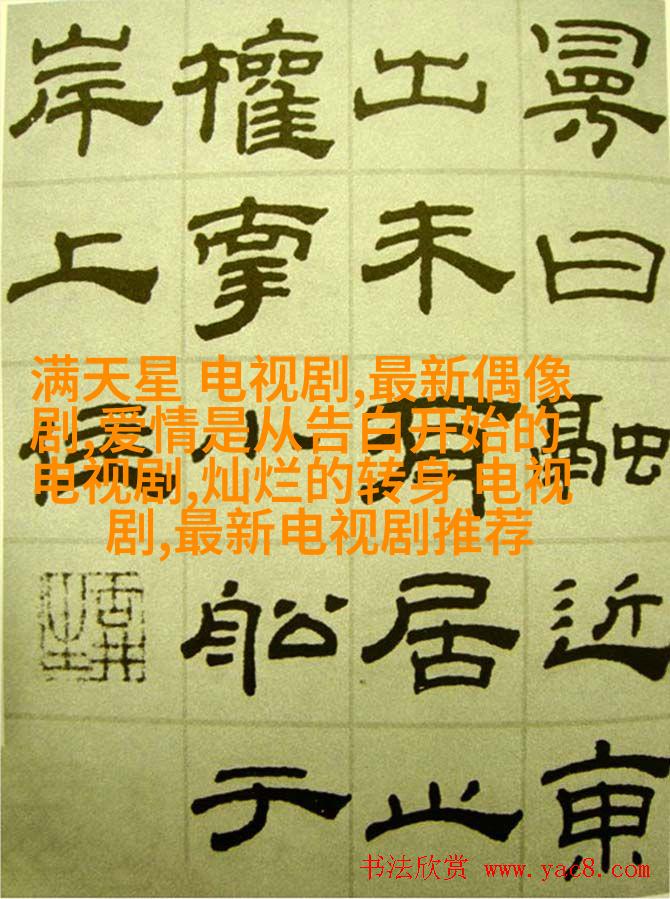 曰融近東
出未有居止
權小船于
岸上
满天星 电视剧,最新偶像
剧,爱情是从告白开始的
电视剧,灿烂的转身 电视
剧,最新电视剧推荐
书法欣赏 www.yac8.com